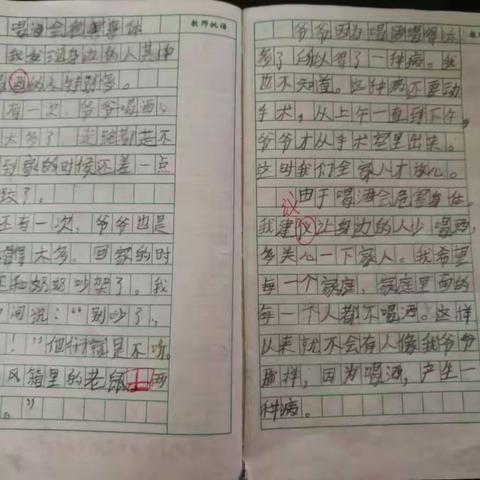 喝酒会危害身体
教师批语
我发现身边的人其中
喝酒的人特别多。
有一次,爷爷喝酒
太多了,走路都走不
到家的时候还差一点
跤了。
还有一次,爷爷也是
太多,回家的时
和奶奶吵架了。我
间说:“别吵了,
!”他们就是不听。
风箱里的老鼠 两
。”
爷爷因为喝酒喝得太
多了,
得了一种病。我
也不知道。这种病还要动
手术,从上午一直到下午,
爷爷才从手术室里出来。
这时我们全家人才放心。
由于喝酒会危害身体。
议
我建议让身边的人少喝酒,
多关心一下家人。我希望
每一个家庭,家庭里面的
每一个人都不喝酒。这样
以来就不会有人像我爷爷
那样,因为喝酒,产生一
种病。